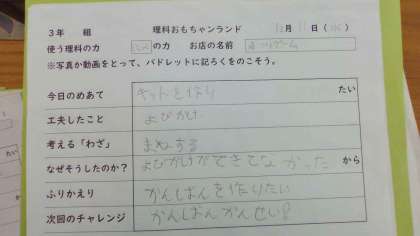 3年 組 理科おもちゃランド 12月11日(水)
使う理科の力 の力 お店の名前 ゲーム
※写真か動画をとって、パドレットに記ろくをのこそう。
今日のめあて キットを作り たい
工夫したこと よびかけ
考える「わざ」 まねする
なぜそうしたのか? よびかけができてなかった から
ふりかえり かんばんを作りたい
次回のチャレンジ かんばんかんせい!